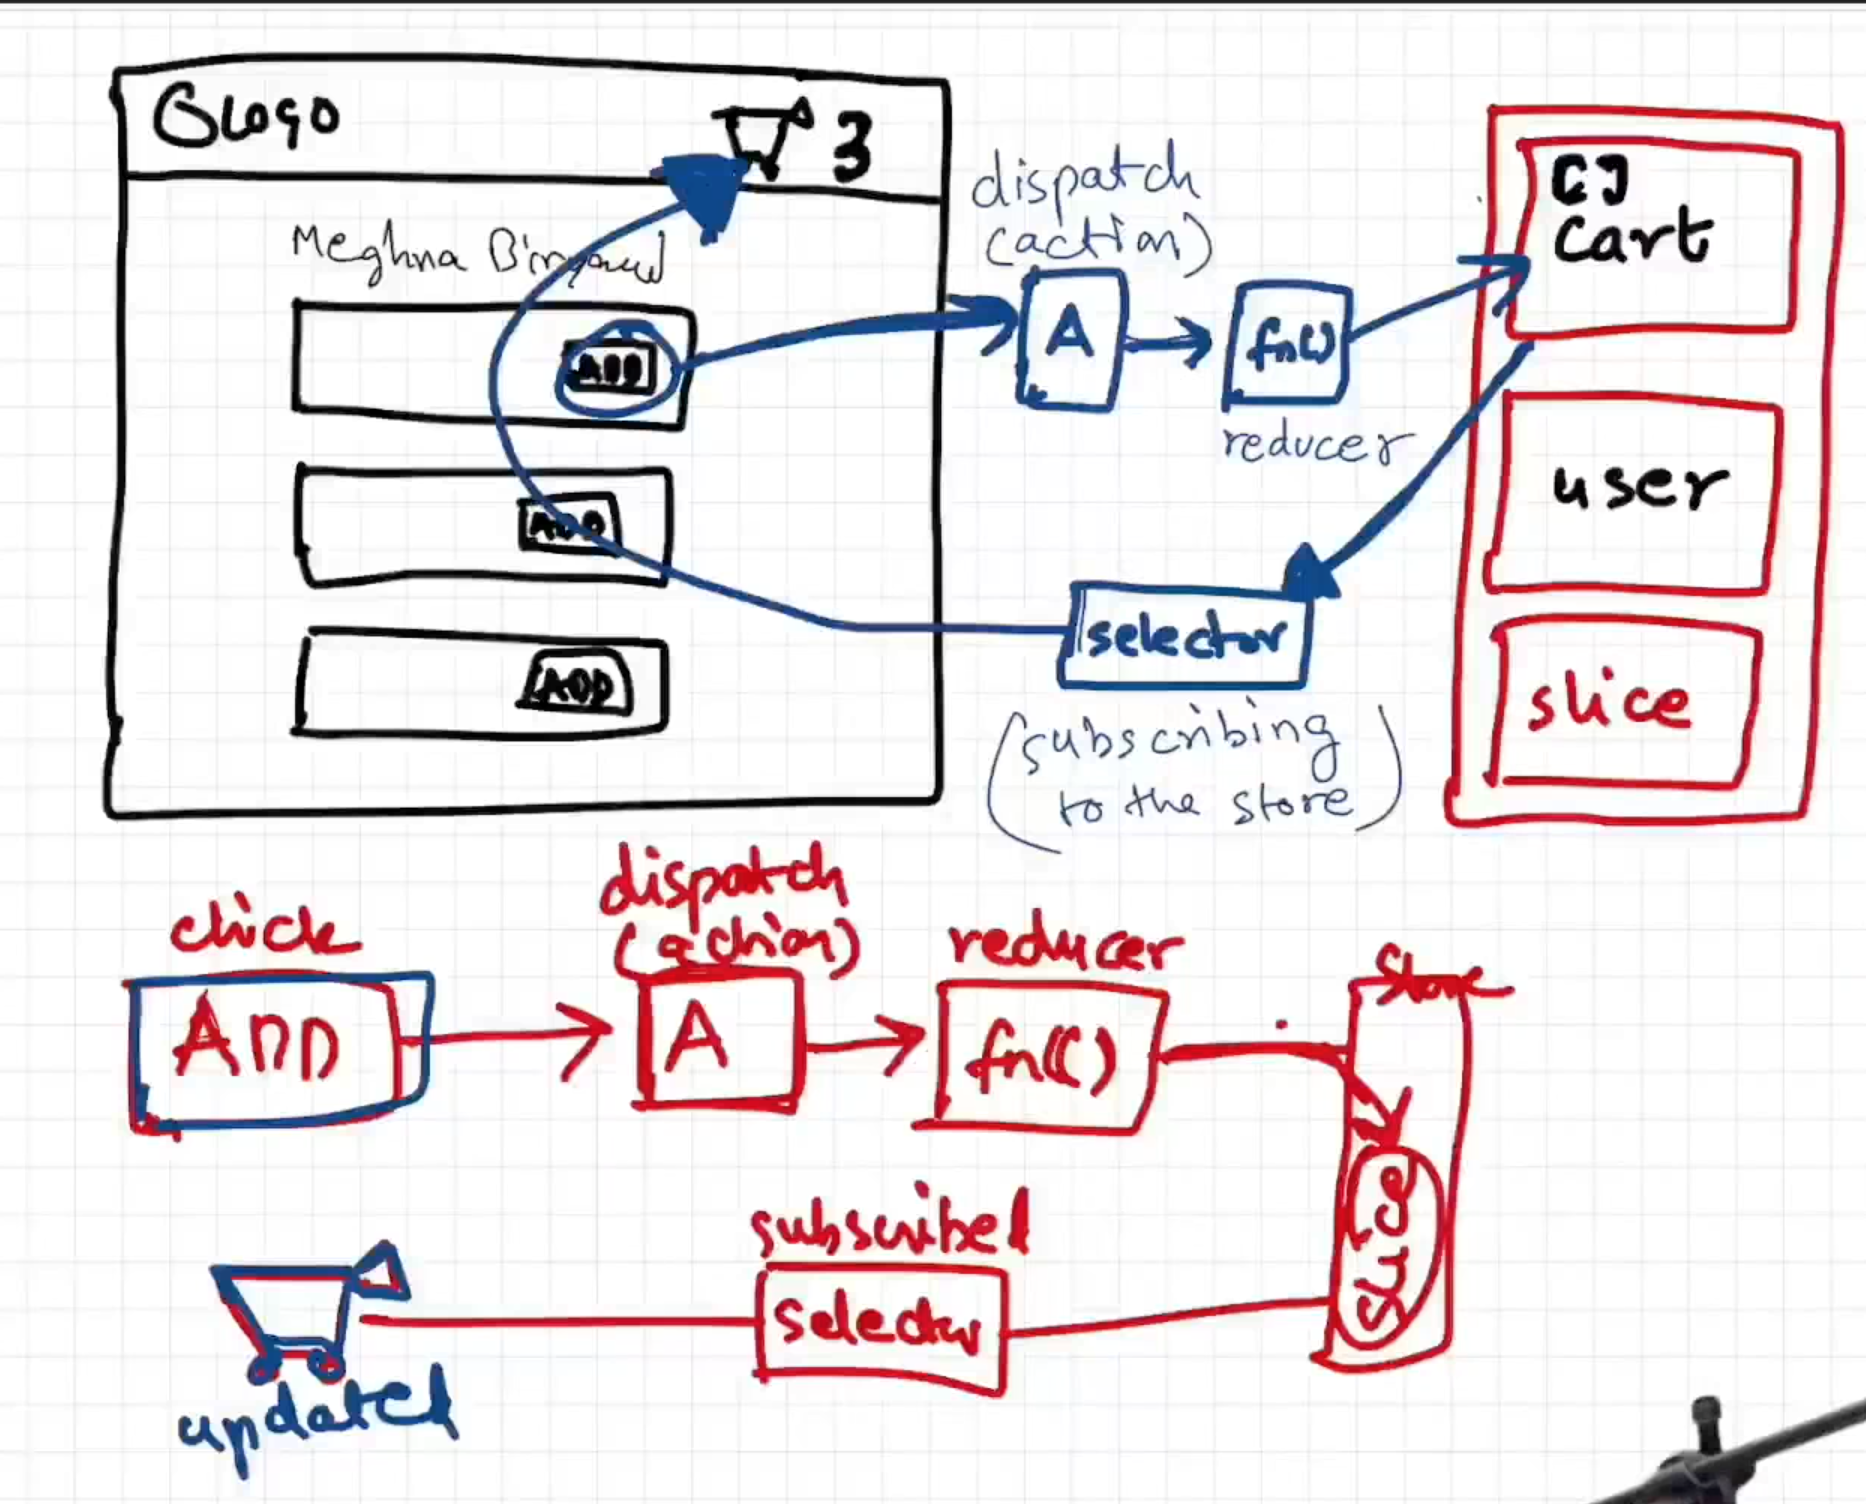 Logo
3
Meghna
ADD
ADD
ADD
dispatch
(action)
A
fn()
reducer
[]
Cart
user
slice
selector
(subscribing
to the store)
click
ADD
dispatch
(action)
A
reducer
fn(()
Store
slice
subscribed
selector
updated